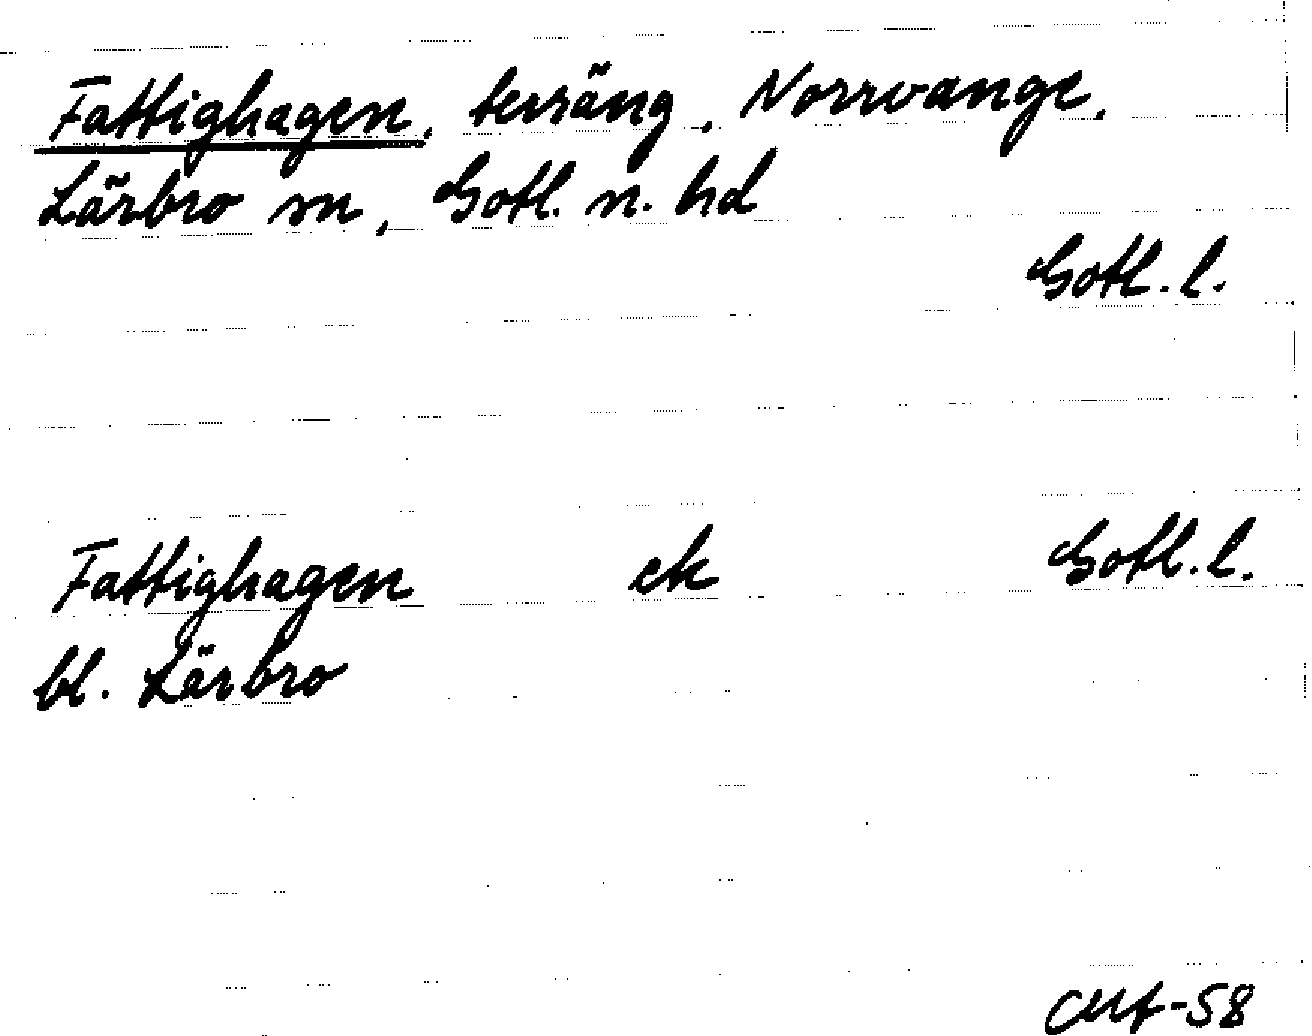 Fattighagen, terräng, Norrvange,
Lärbro sn, Gotl. n. hd
Gotl. l.
Fattighagen ek Gotl. l.
bl. Lärbro